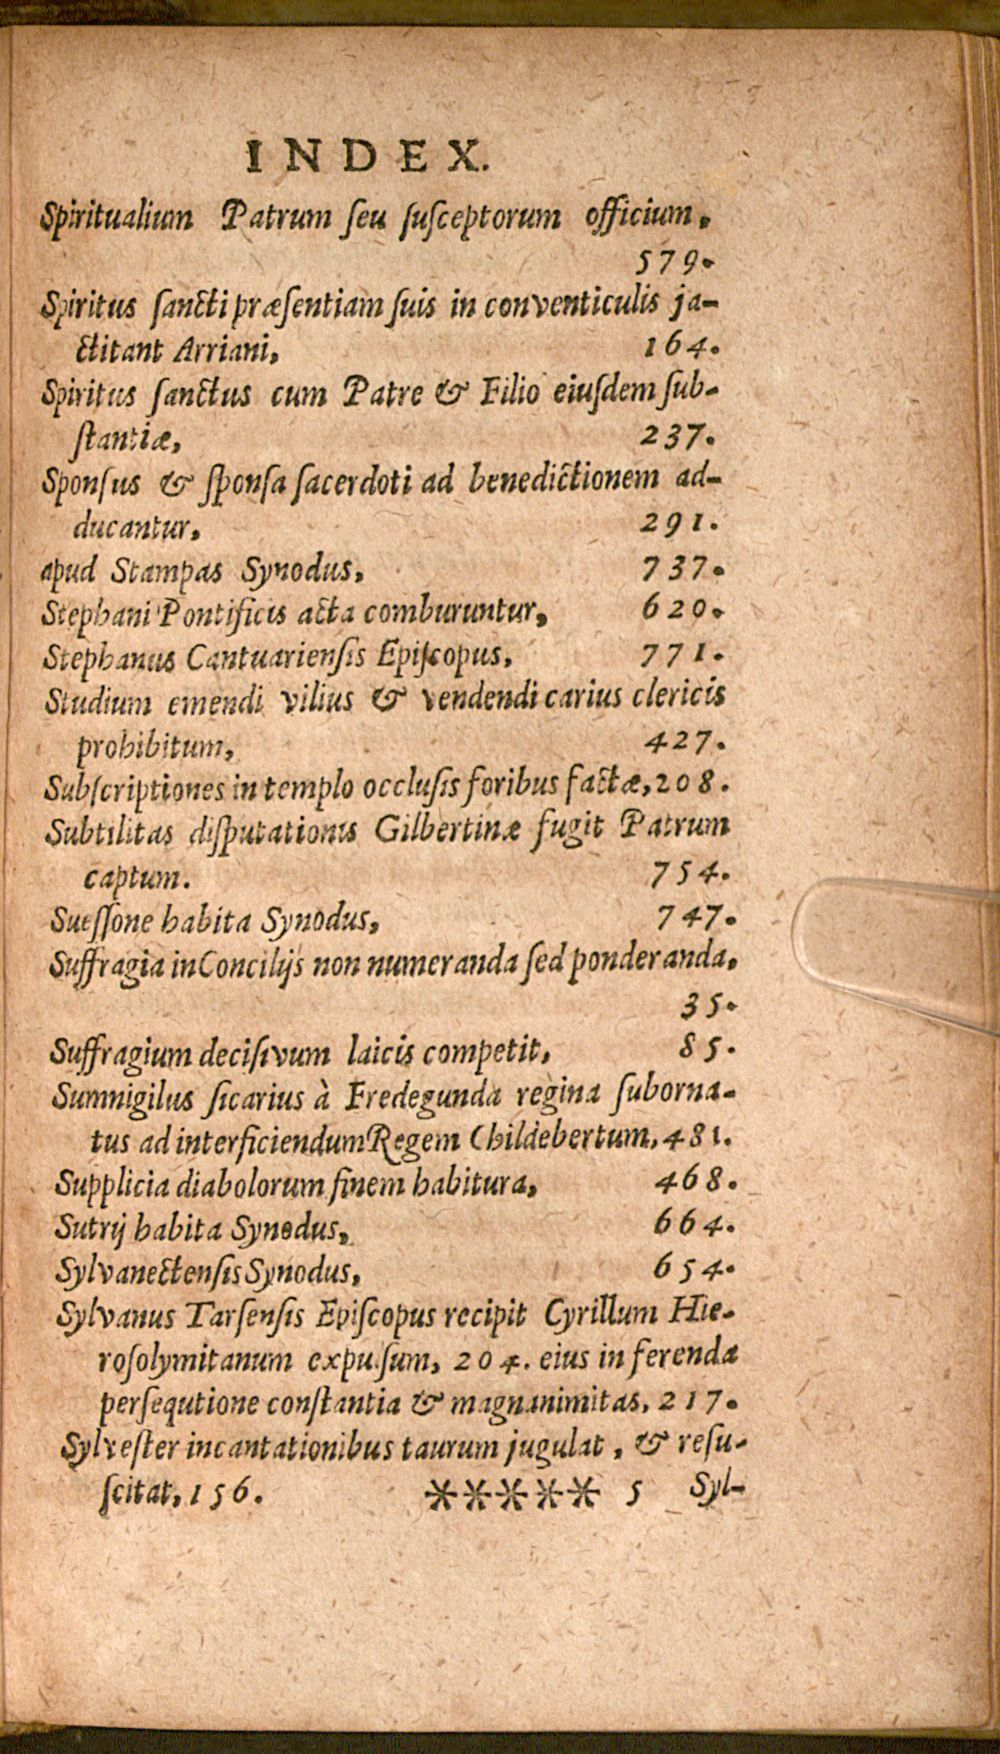 INDEX.
Spiritualium Patrum ſeu ſuſceptorum officium,
579.
Spiritus ſancti præſentiam ſuis in conventiculis ja-
ctitant Arriani, 164.
Spiritus ſanctus cum Patre & Filio eiuſdem ſub-
ſtantiæ, 237.
Sponſus & ſponſa ſacerdoti ad benedictionem ad-
ducantur, 291.
apud Stampas Synodus, 737.
Stephani Pontificis acta comburuntur, 620.
Stephanus Cantuarienſis Epiſcopus, 771.
Studium emendi vilius & vendendi carius clericis
prohibitum, 427.
Subſcriptiones in templo occluſis foribus factæ, 208.
Subtilitas diſputationis Gilbertinæ fugit Patrum
captum. 754.
Sueſſone habita Synodus, 747.
Suffragia in Concilijs non numeranda ſed ponderanda,
35.
Suffragium deciſivum laicis competit, 85.
Sumnigilus ſicarius à Fredegunda regina ſuborna-
tus ad interficiendum Regem Childebertum, 481.
Supplicia diabolorum finem habitura, 468.
Sutrij habita Synodus, 664.
Sylvanectenſis Synodus, 654.
Sylvanus Tarſenſis Epiſcopus recipit Cyrillum Hie-
roſolymitanum expulſum, 204. eius in ferenda
perſequtione conſtantia & magnanimitas, 217.
Sylveſter incantationibus taurum jugulat, & reſu-
ſcitat, 156. ***** 5 Syl-